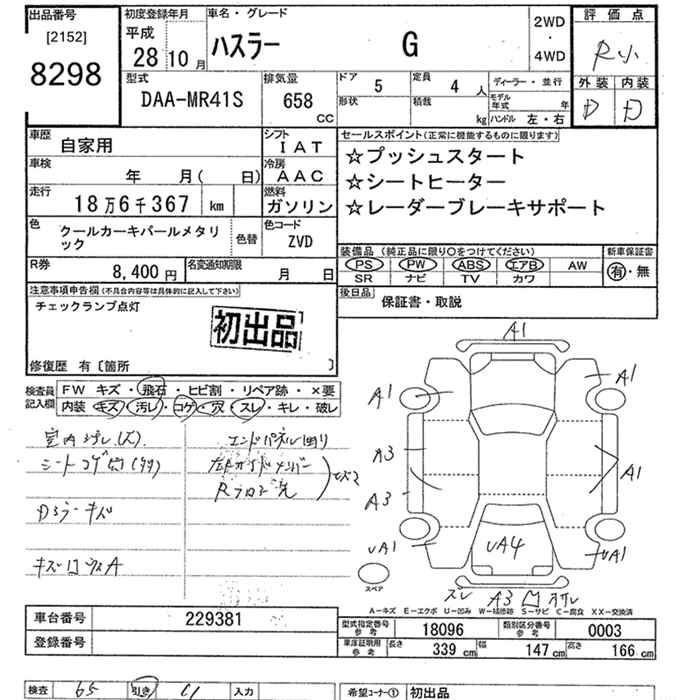 出品番号
[2152]
8298
初度登録年月
平成
28 10 月
車名・グレード
ハスラー G
2WD
・
4WD
評価点
R小
外装 内装
D D
型式
DAA-MR41S
排気量
658
CC
ドア
5
形状
定員
4 人
積載
kg
ディーラー・並行
モデル年式 年
ハンドル 左・右
車歴
自家用
シフト
IAT
車検
年 月( 日)
冷房
AAC
走行
18万6千367 km
燃料
ガソリン
色
クールカーキパールメタリ
ック
色替
色コード
ZVD
R券
8,400円
名変通知期限
月 日
セールスポイント(正常に機能するものに限ります)
☆プッシュスタート
☆シートヒーター
☆レーダーブレーキサポート
装備品(純正品に限り○をつけてください)
PS PW ABS エアB AW
SR ナビ TV カワ
新車保証書
有・無
後日品
保証書・取説
注意事項申告欄(不具合内容等は具体的に記入して下さい)
チェックランプ点灯
初出品
修復歴 有〔箇所 〕
検査員
記入欄
FW キズ・飛石・ヒビ割・リペア跡・×要
内装 キズ・汚レ・コゲ・穴・スレ・キレ・破レ
エンドパネル凹り
A1
A1
A1
A3
A1
A3
UA1
UA4
UA1
スペア
ズレ
A3
A-キズ E-エクボ U-凹み W-補修跡 S-サビ C-腐食 XX-交換済
車台番号
229381
登録番号
型式指定番号
参考
18096
類別区分番号
参考
0003
車庫証明用
参考
長さ 339 cm
幅 147 cm
高さ 166 cm
検査 65
引き
入力
希望コーナー① 初出品